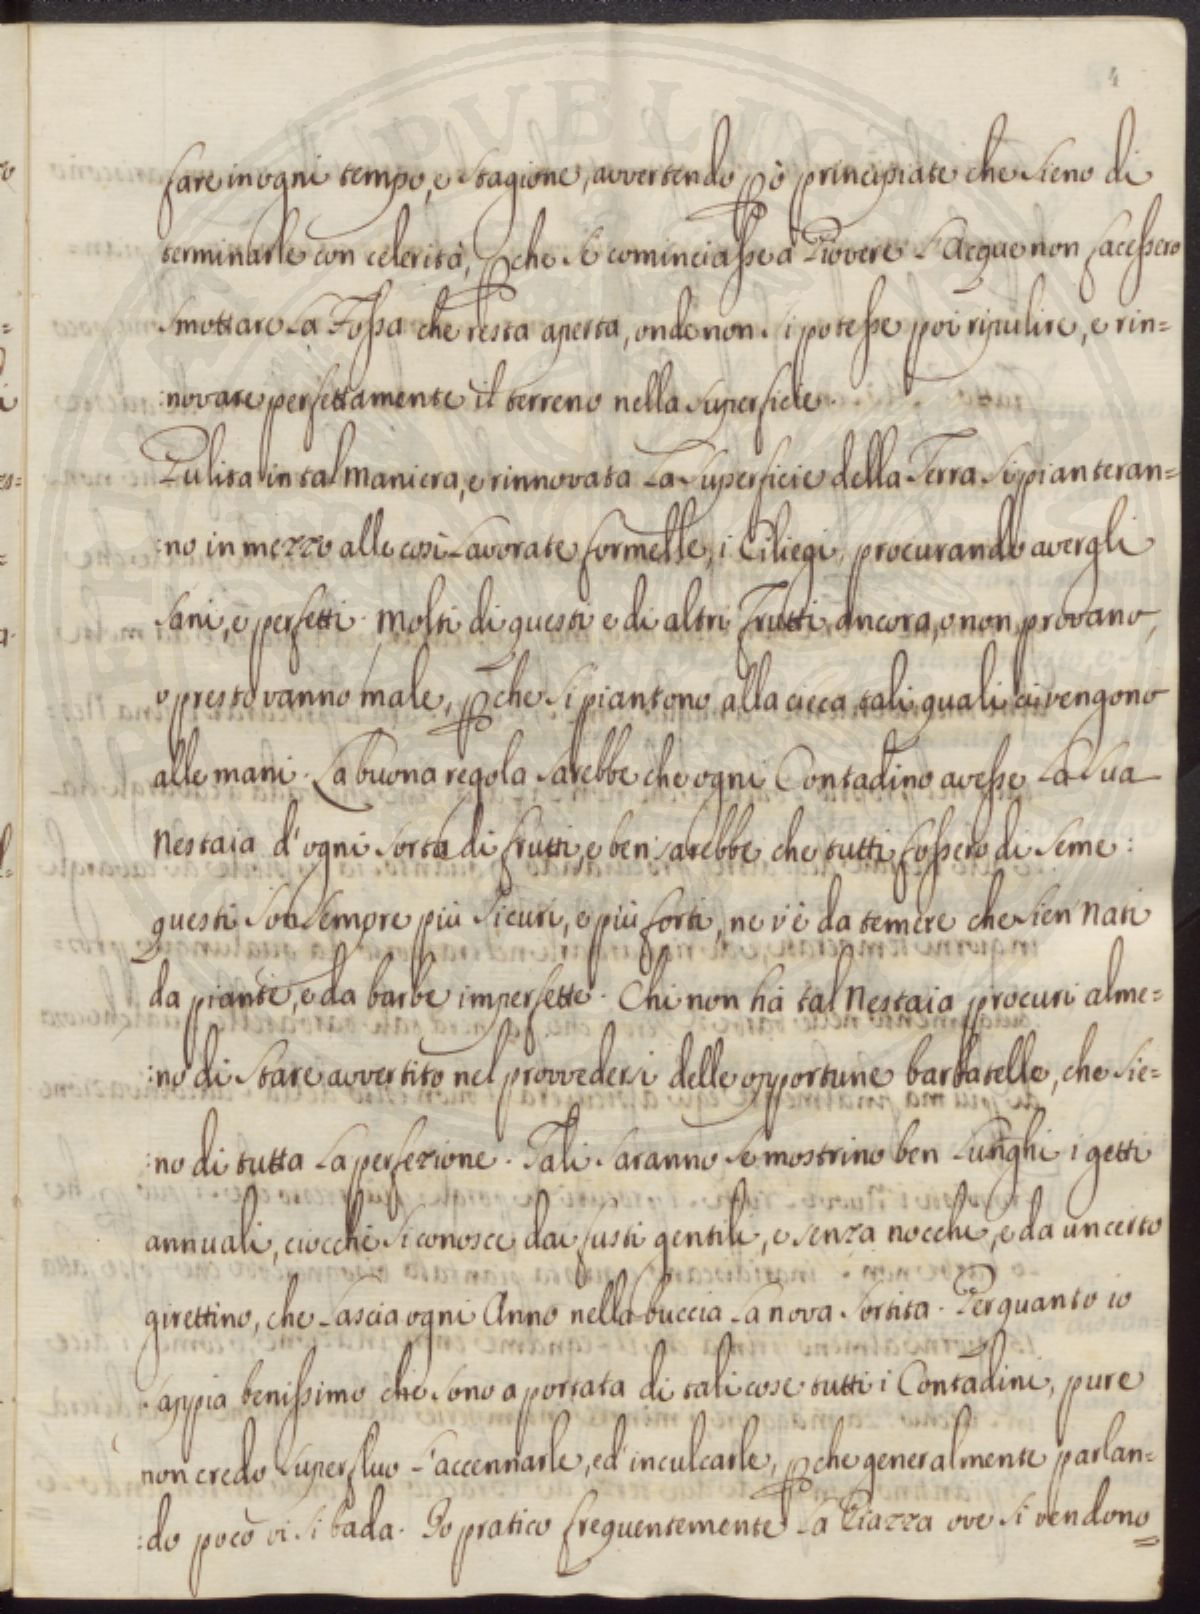 4
fare in ogni tempo, e Stagione, avvertendo ꝑò principiate che Sieno di
terminarle con celerità, ꝑche Se cominciasse a Piovere L'Acque non facessero
Smottare La Fossa che resta aperta, onde non Si potesse poi ripulire, e rin=
:novare perfettamente il terreno nella Superficie.
Pulita in tal maniera, e rinnovata La Superficie della Terra Si pianteran=
:no in mezzo alle così Lavorate formelle, i Ciliegi, procurando avergli
Sani, e perfetti. Molti di questi e di altri Frutti ancora, o non provano,
o presto vanno male, ꝑche Si piantono alla cieca tali quali ci vengono
alle mani. La buona regola Sarebbe che ogni Contadino avesse La Sua
Nestaia d'ogni Sorta di frutti, e ben sarebbe che tutti fossero di Seme:
questi Son Sempre più Sicuri, e più forti, ne v'è da temere che Sien Nati
da piante, e da barbe imperfette. Chi non hà tal Nestaia procuri alme=
:no di Stare avvertito nel provvedersi delle opportune barbatelle, che Sie=
:no di tutta La perfezione. Tali Saranno Se mostrino ben Lunghi i getti
annuali, ciocchè Si conosce dai fusti gentili, e Senza nocchi, e da un certo
girettino, che Lascia ogni Anno nella buccia La nova Sortita. Per quanto io
Sappia benissimo che Sono a portata di tali cose tutti i Contadini, pure
non credo Superfluo L'accennarle, ed inculcarle, ꝑche generalmente parlan=
:do poco vi Si bada. Io pratico frequentemente La Piazza ove Si vendono=